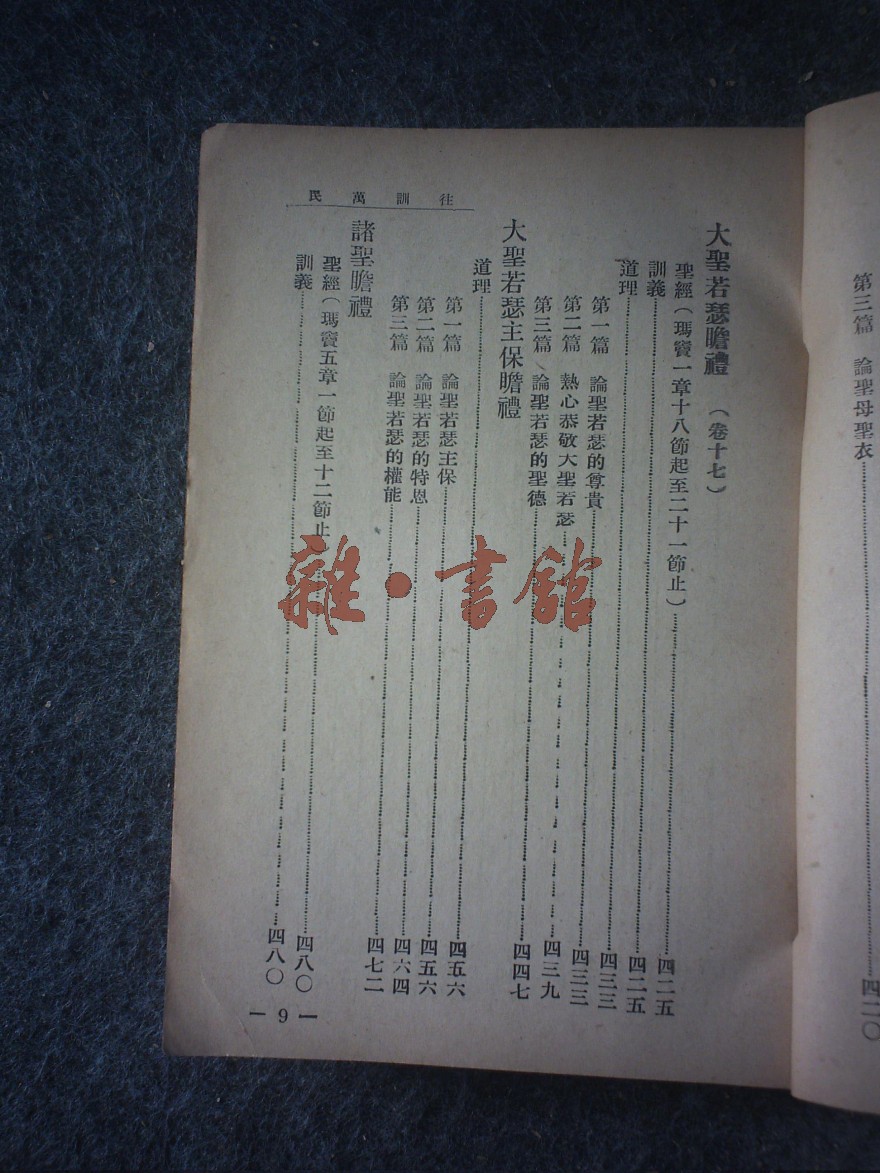 第三篇 論聖母聖衣……四二〇
往訓萬民
大聖若瑟瞻禮 （卷十七）
聖經（瑪竇一章十八節起至二十一節止）……四二五
訓義……四二五
道理……四三三
第一篇 論聖若瑟的尊貴……四三三
第二篇 熱心恭敬大聖若瑟……四三九
第三篇 論聖若瑟的聖德……四四七
大聖若瑟主保瞻禮
道理……四五六
第一篇 論聖若瑟主保……四五六
第二篇 論聖若瑟的特恩……四六四
第三篇 論聖若瑟的權能……四七二
諸聖瞻禮
聖經（瑪竇五章一節起至十二節止）……四八〇
訓義……四八〇
— 9 —
雜·書館